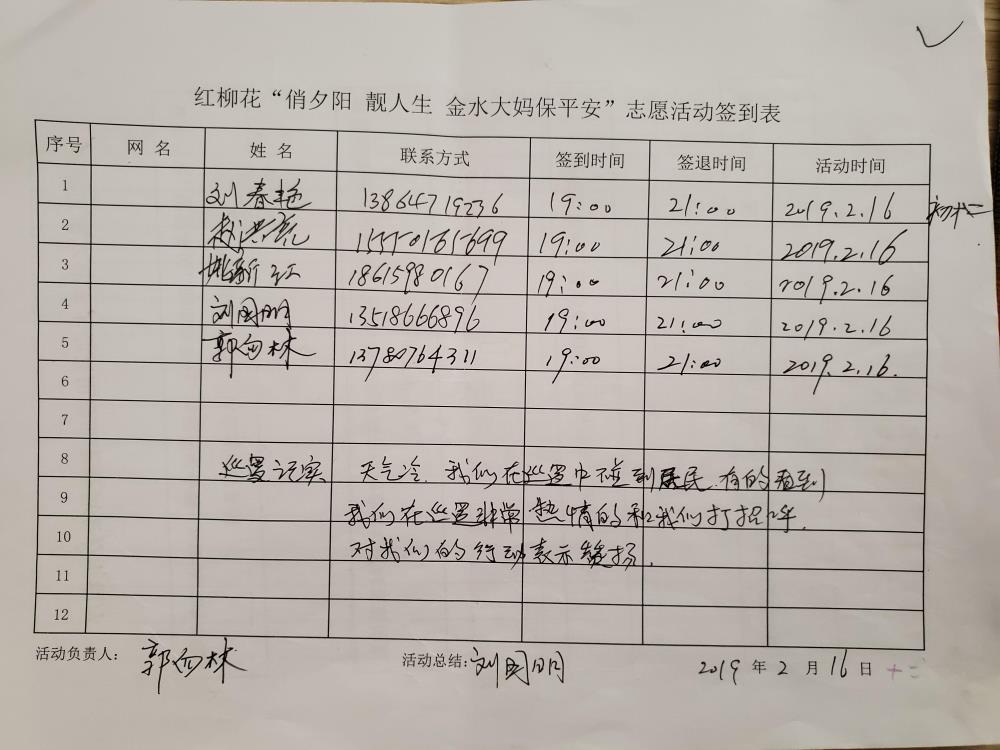 红柳花“俏夕阳 靓人生 金水大妈保平安”志愿活动签到表
序号 网 名 姓 名 联系方式 签到时间 签退时间 活动时间
1 刘春艳 13864719236 19:00 21:00 2019.2.16
2 15550161699 19:00 21:00 2019.2.16
3 18615980167 19:00 21:00 2019.2.16
4 刘国明 13518666896 19:00 21:00 2019.2.16
5 郭向林 13780764311 19:00 21:00 2019.2.16.
6
7
8 巡逻记实 天气冷.我们在巡逻中碰到居民.有的看到
9 我们在巡逻非常热情的和我们打招呼.
10 对我们的行动表示赞扬.
11
12
活动负责人: 郭向林 活动总结: 刘国明 2019 年 2 月 16 日